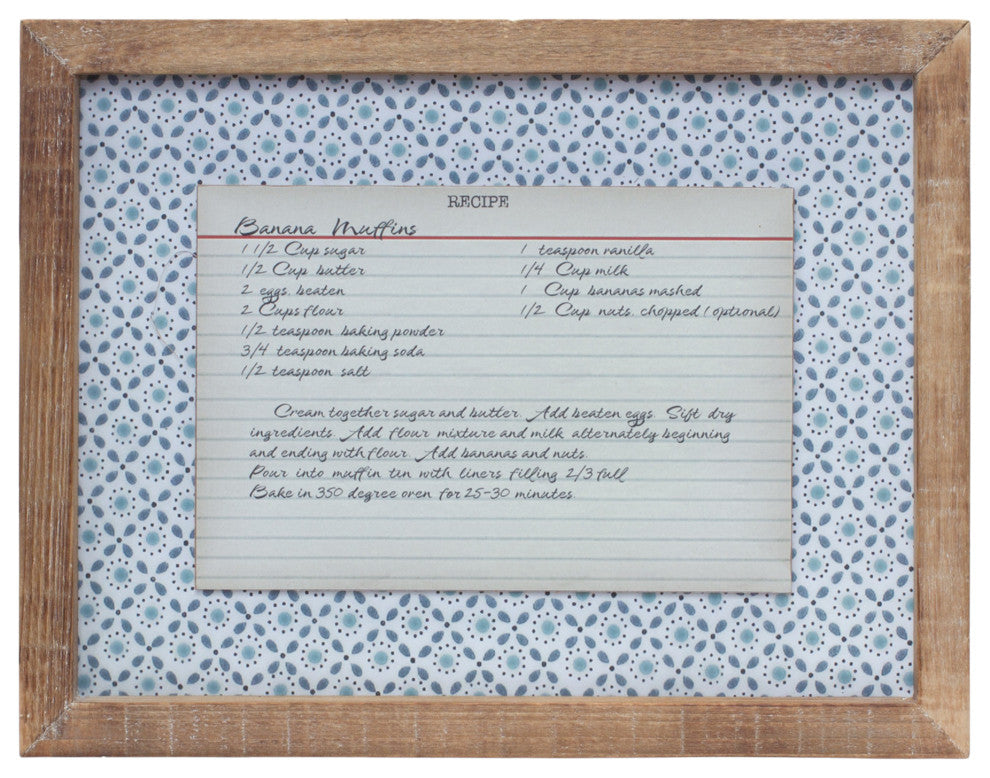 RECIPE
Banana Muffins
1 1/2 Cup sugar
1/2 Cup butter
2 eggs, beaten
2 Cups flour
1/2 teaspoon baking powder
3/4 teaspoon baking soda
1/2 teaspoon salt
1 teaspoon vanilla
1/4 Cup milk
1 Cup bananas mashed
1/2 Cup nuts, chopped (optional)
Cream together sugar and butter. Add beaten eggs. Sift dry
ingredients. Add flour mixture and milk alternately beginning
and ending with flour. Add bananas and nuts.
Pour into muffin tin with liners filling 2/3 full
Bake in 350 degree oven for 25-30 minutes.